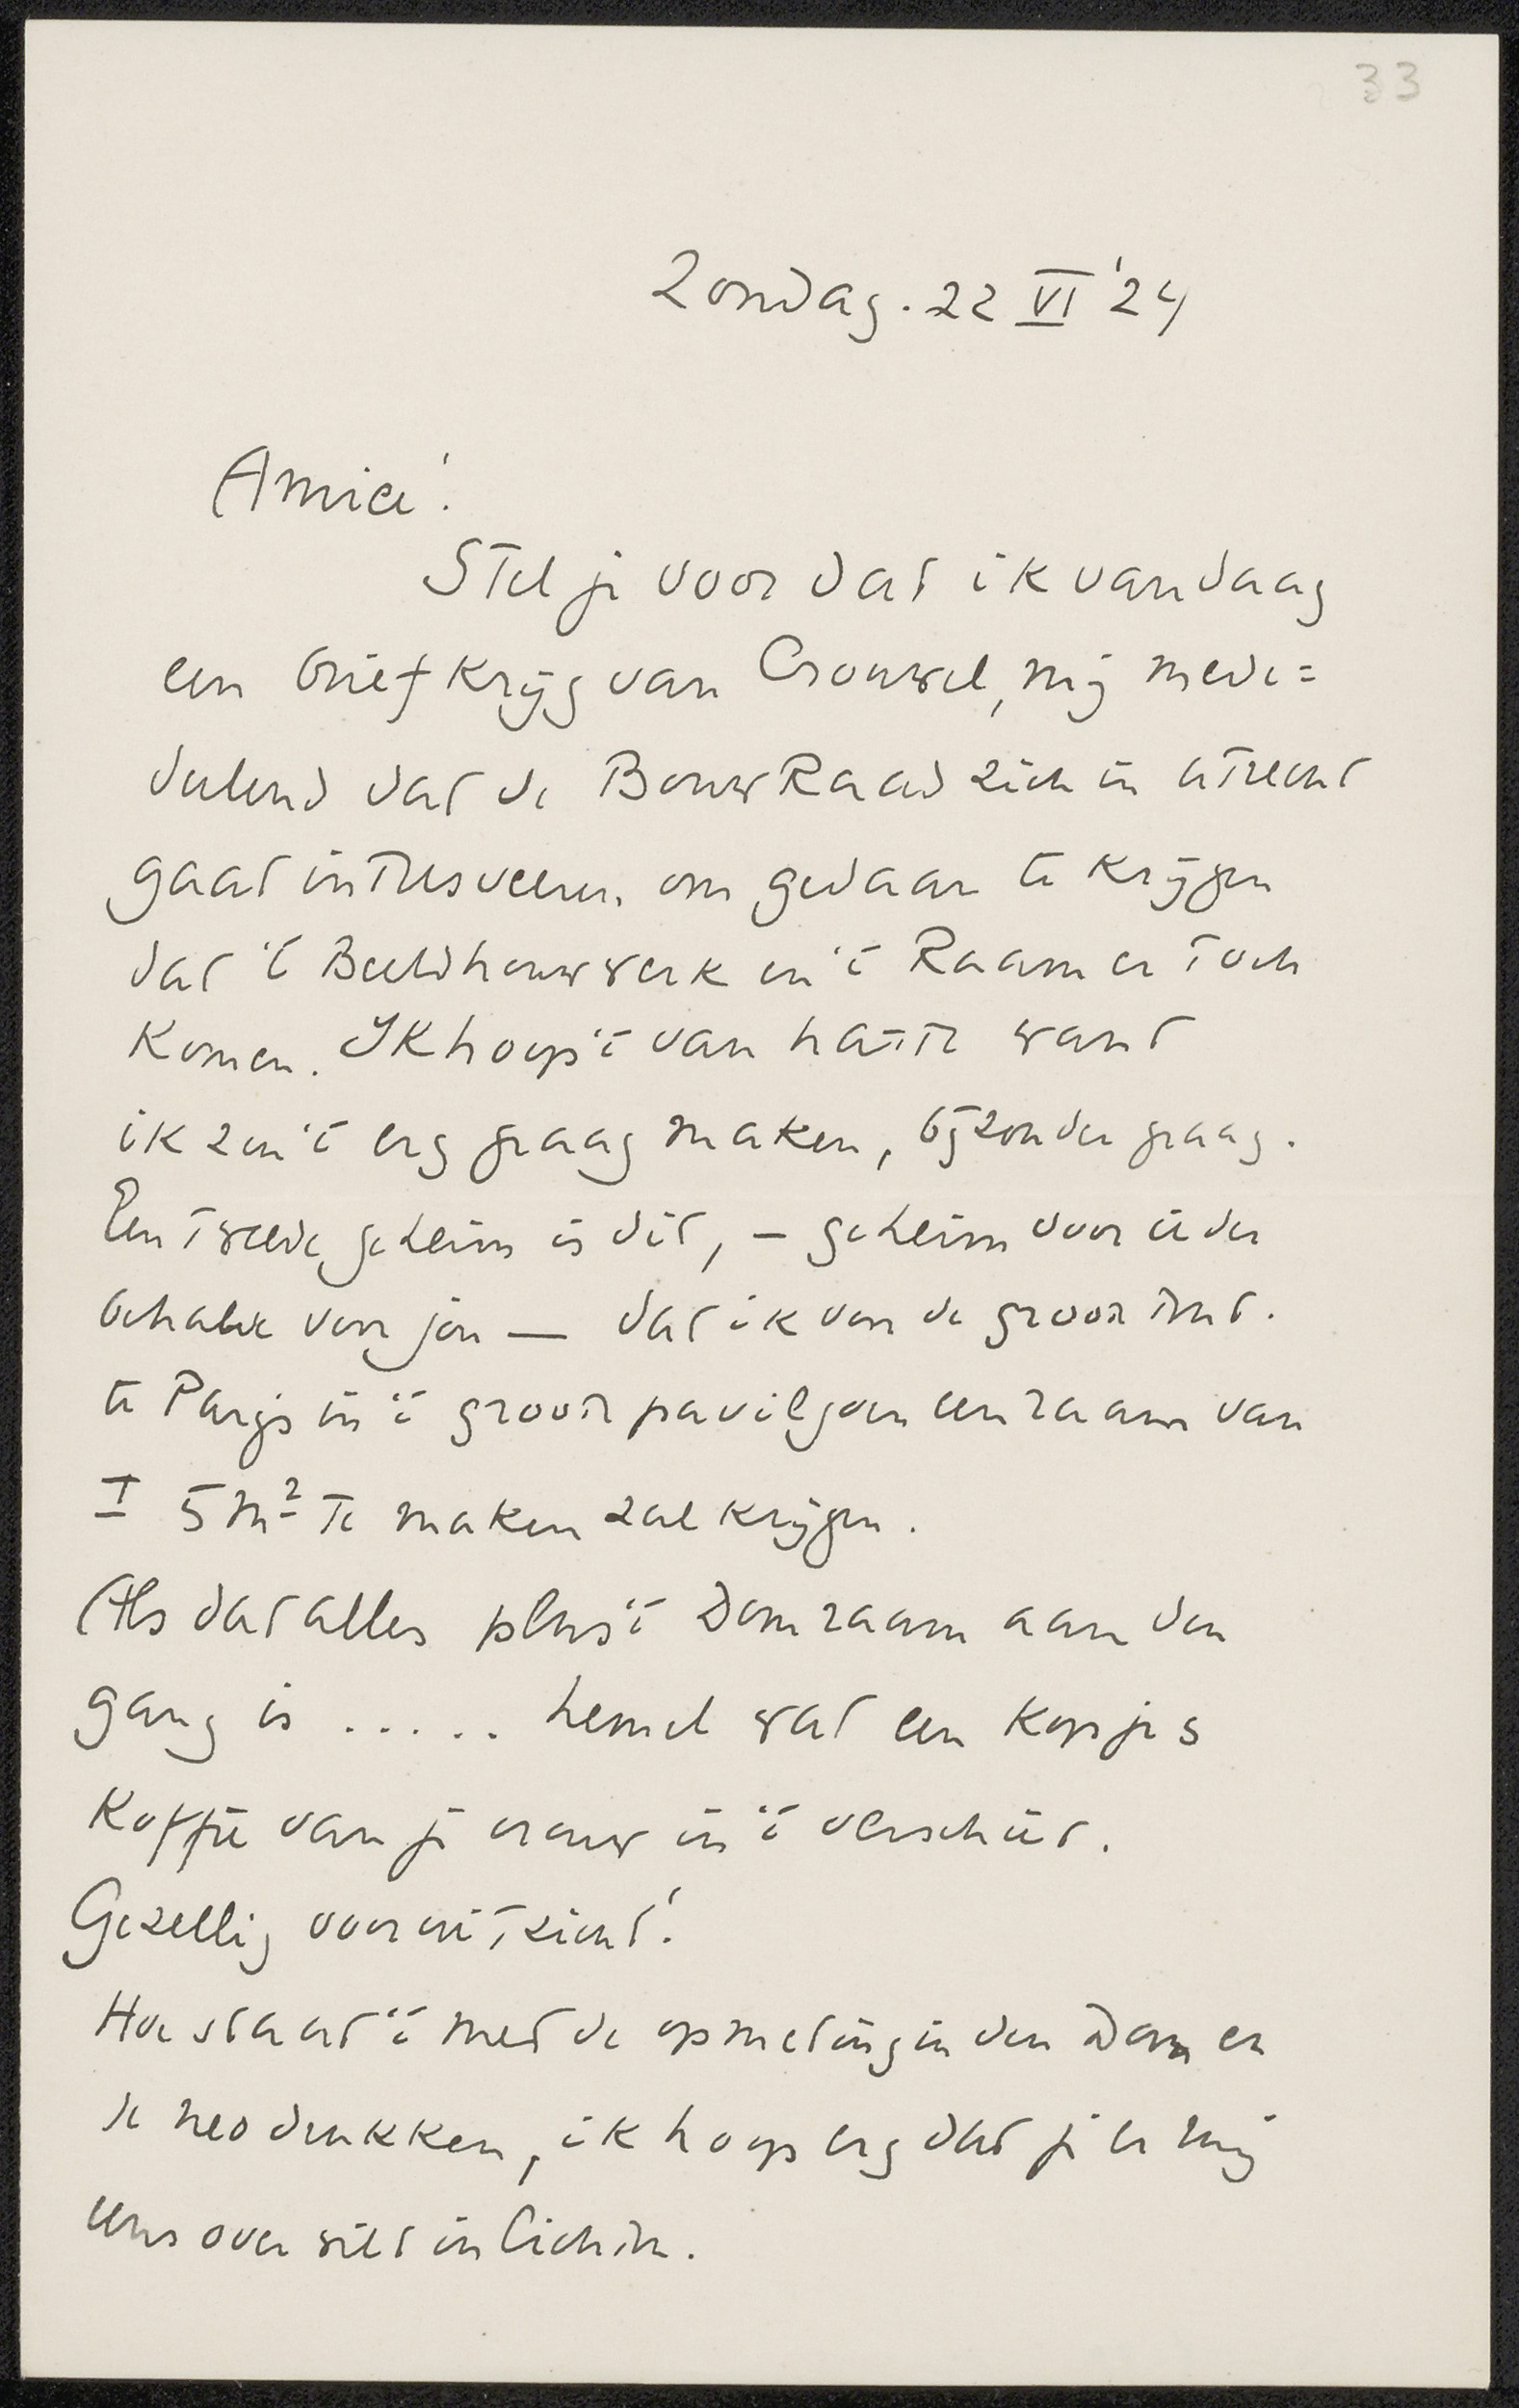 33
Zondag. 22 VI '24
Amice!
Stel je voor dat ik vandaag
een brief krijg van Crouwel, mij mede=
deelend dat de BouwRaad zich in Utrecht
gaat intresveeren om gedaan te krijgen
dat 't Beeldhouwwerk en 't Raam er toch
komen. Ik hoop 't van harte want
ik zou 't erg graag maken, bijzonder graag.
Een tweede geheim is dit, – geheim voor ieder
behalve voor jou — dat ik voor de groote tent.
te Parijs in 't groote paviljoen een raam van
± 5 M² te maken zal krijgen.
Als dat alles plus 't Domraam aan den
gang is ..... hemel wat een kopjes
koffie van je vrouw in 't verschiet.
Gezellig vooruitzicht!
Hoe staat 't met de opmeting in den Dom en
de neodrukken, ik hoop erg dat je er mij
eens over wilt inlichten.